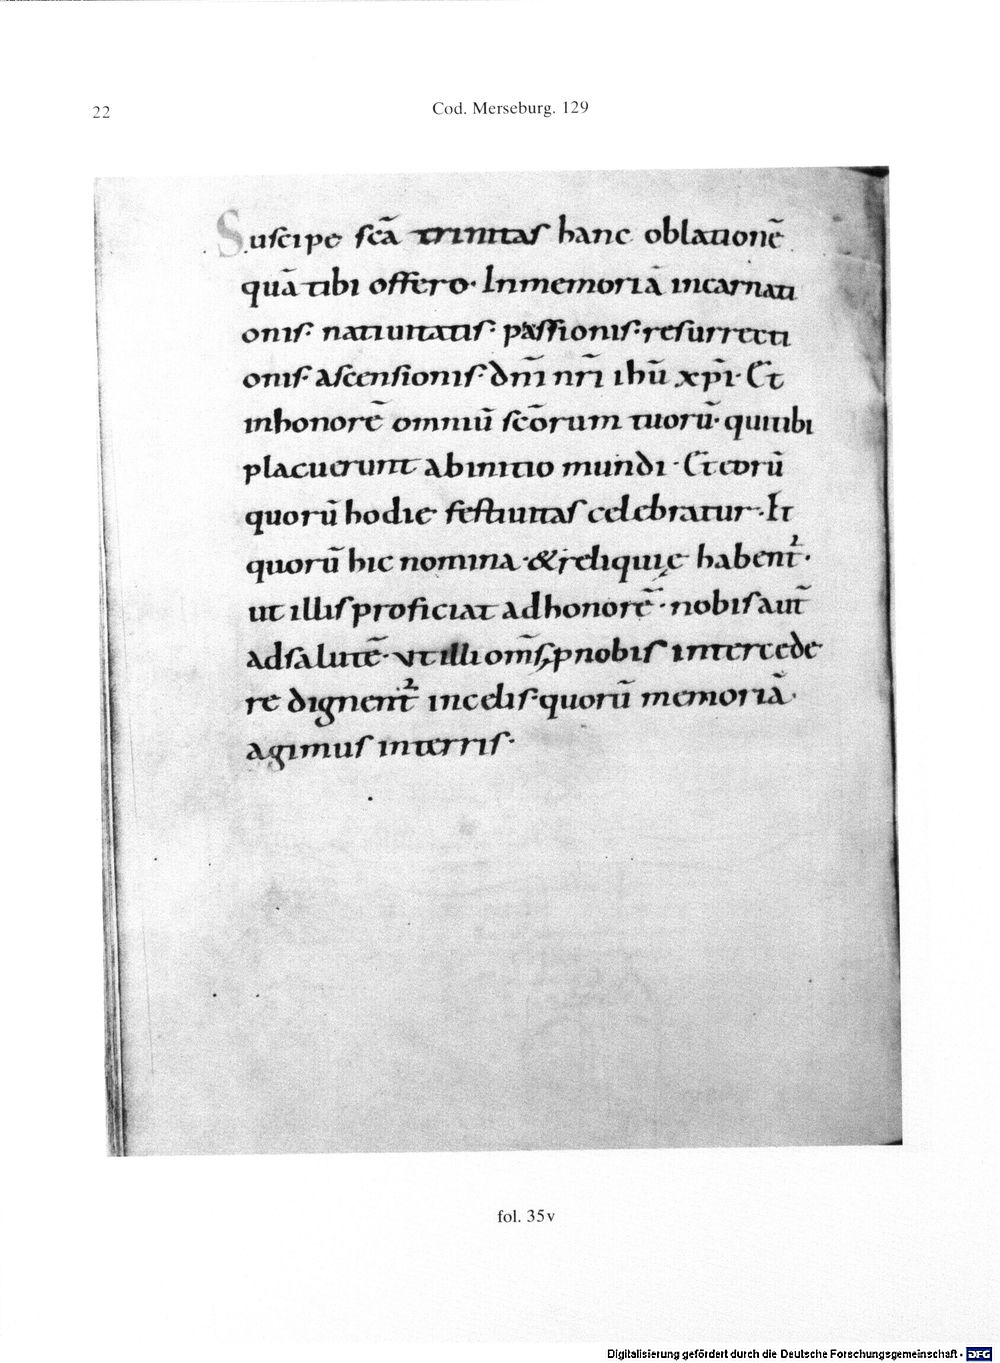 22
Cod. Merseburg. 129
Suscipe sc̄a trinitas hanc oblationē
quā tibi offero· Inmemoriā incarnati
onis· natiuitatis· passionis· resurrecti
onis· ascensionis· dn̄i nr̄i ihū xp̄i· Et
inhonorē omniū sc̄orum tuorū· quitibi
placuerunt abinitio mundi· Et eorū
quorū hodie festiuitas celebratur· Et
quorū hic nomina· & reliquię habent᷑·
ut illis proficiat adhonorē· nobis aut̄
adsalutē· ut illi om̄s ꝓnobis intercede
re dignent᷑ incęlis· quorū memoriā·
agimus interris·
fol. 35v
Digitalisierung gefördert durch die Deutsche Forschungsgemeinschaft - DFG